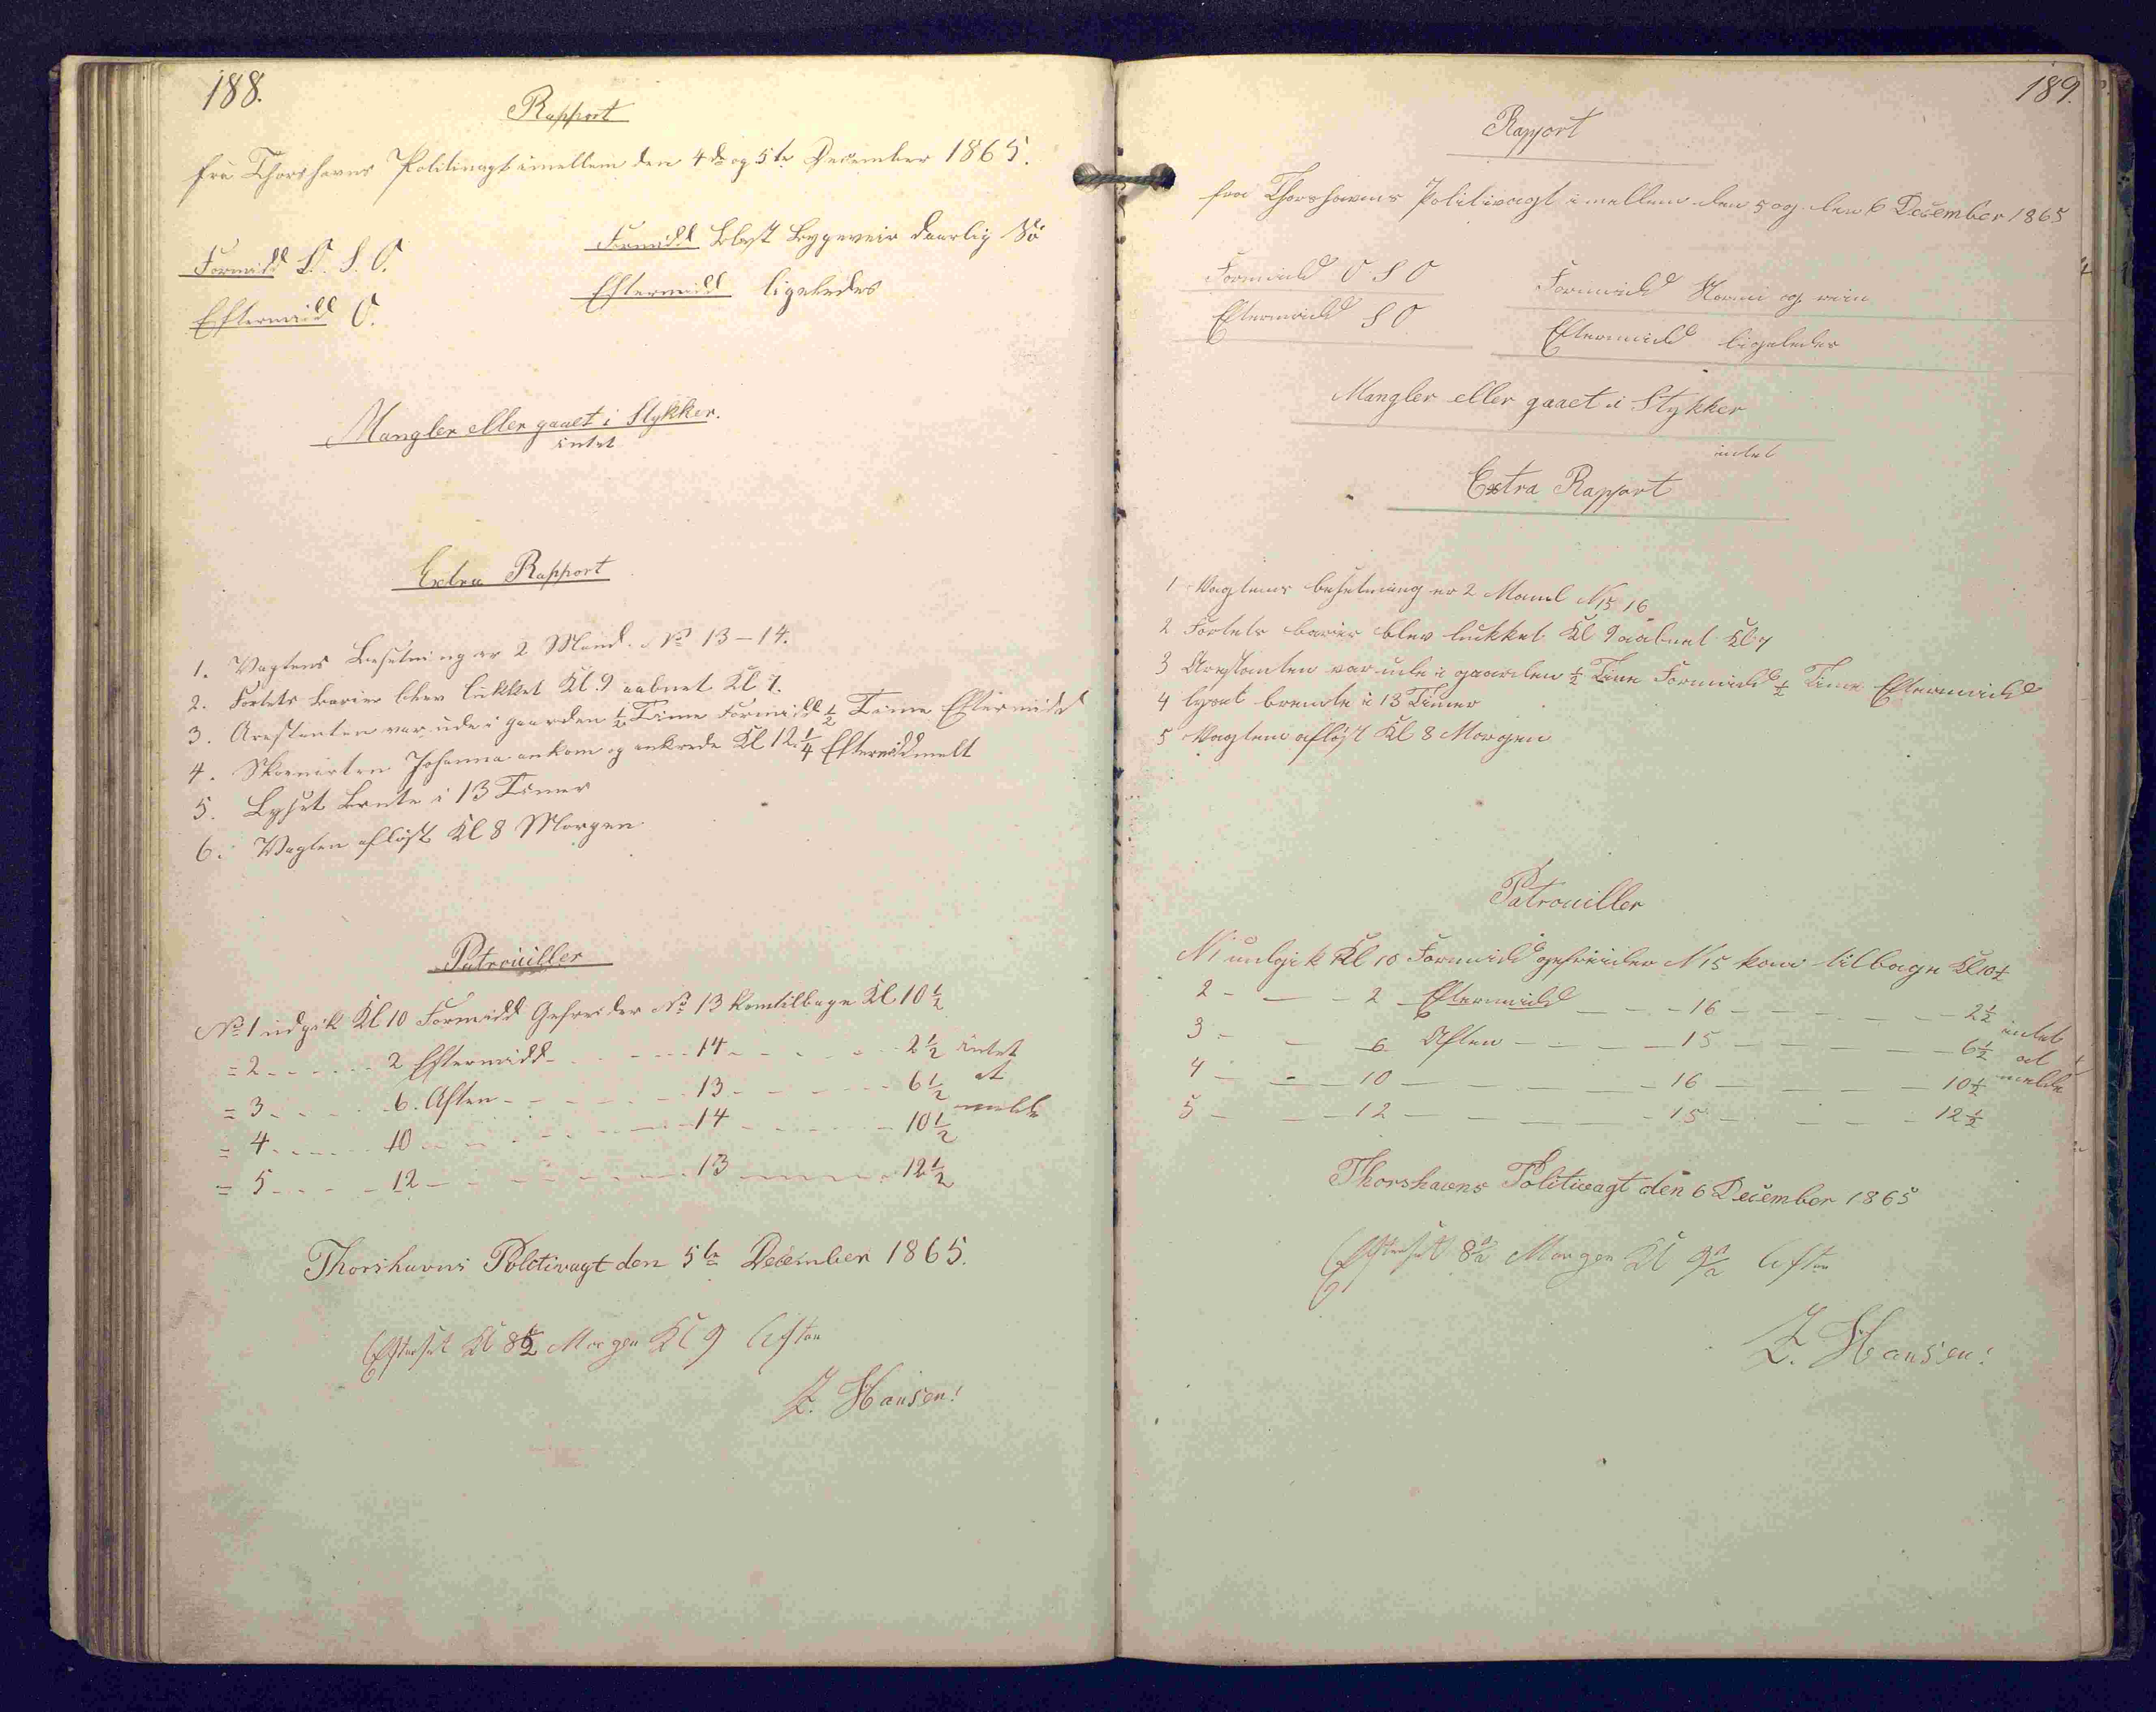 188.
Rapport
fra Thorshavns Politivagt imellem den 4de og 5te December 1865.
Formidd O. S. O.
Formidd blæst bygeveir daarlig Sö
Eftermidd O.
Eftermidd ligeledes
Mangler eller gaaet i Stykker.
intet
Extra Rapport
1. Vagtens Besetning er 2 Mand. No 13-14.
2. Fortets barier blev lukket Kl. 9 aabnet Kl 7.
3. Arestanten var ude i gaarden 1/2 Time Formidd 1/2 Time Eftermidd
4. Skonnerten Johanna ankom og ankrede Kl 12 1/4 Eftermidd
5. Lyset brente i 13 Timer
6. Vagten aflöst Kl 8 Morgen
Patrouiller
No 1 udgik Kl 10 Formidd Gefreider No 13 kom tilbage Kl 10 1/2
= 2 - - - 2 Eftermidd - - - 14 - - - 2 1/2 intet
= 3 - - - 6. Aften - - - 13 - - - 6 1/2 at
= 4 - - - 10 - - - 14 - - - 10 1/2 melde
= 5 - - - 12 - - - 13 - - - 12 1/2
Thorshavns Politivagt den 5te December 1865.
Efterset Kl 8 1/2 Morgen Kl 9 Aften
Z. Hansen!
189.
Rapport
fra Thorshavns Politivagt imellem den 5 og den 6 December 1865
Formidd O S O
Formidd Storm og rein
Eftermidd S O
Eftermidd ligeledes
Mangler eller gaaet i Stykker
intet
Extra Rapport
1 Vagtens besetning er 2 Mand N 15 16
2 Fortets barier blev lukket Kl 9 aabnet Kl 7
3 Arestanten var ude i gaarden 1/2 Time Formidd 1/2 Time Eftermidd
4 lyset brende i 13 Timer
5 Vagten aflöst Kl 8 Morgen
Patrouiller
N 1 undgik Kl 10 Formidd gefreider N 15 kom tilbage Kl 10 1/2
2 - - - 2 Eftermidd - - - 16 - - - 2 1/2 intet
3 - - - 6 Aften - - - 15 - - - 6 1/2 at
4 - - - 10 - - - 16 - - - 10 1/2 melde
5 - - - 12 - - - 15 - - - 12 1/2
Thorshavns Politivagt den 6 December 1865
Efterset 8 1/2 Morgen Kl 9 1/2 Aften
Z. Hansen!